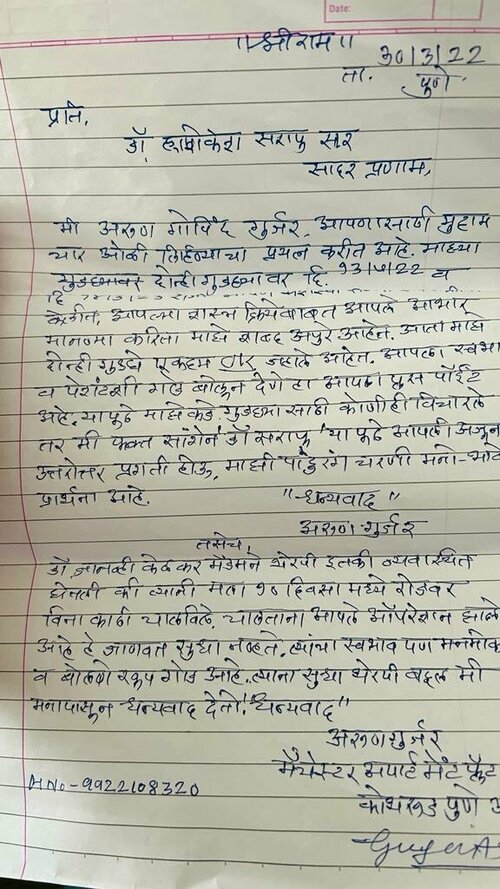 Date:
॥श्रीराम॥
ता. 30/3/22
पुणे.
प्रति,
डॉ. हृषीकेश सराफ सर
सादर प्रणाम,
मी अरुण गोविंद गुर्जर. आपणासाठी मुद्दाम
चार ओळी लिहिण्याचा प्रयत्न करीत आहे. माझ्या
गुडघ्यावर दोन्ही गुडघ्यावर दि. व
आपल्या शस्त्र क्रियेबाबत आपले आभार
मानण्या करिता माझे शब्द अपुरे आहेत. आता माझे
दोन्ही गुडघे एकदम OK जहाले आहेत. आपला स्वभाव
व पेशंटशी गोड बोलून देणे हा आपला प्लस पॉईंट
आहे. यापुढे माझे कडे गुडघ्या साठी कोणीही विचारले
तर मी फक्त सांगेन डॉ सराफ 'या पुढे आपली अजून
उत्तरोत्तर प्रगती होऊ, माझी पांडुरंग चरणी मनो-भावे
प्रार्थना आहे.
"धन्यवाद"
अरुण गुर्जर
तसेच,
डॉ. जानव्ही केळकर मॅडमने थेरपी इतकी व्यवास्थित
घेतली की त्यांनी मला १० दिवसा मध्ये रोडवर
विना काठी चालविले. चालताना आपले ऑपरेशन झाले
आहे हे जाणवत सुध्दा नव्हते. त्यांचा स्वभाव पण मनमोक
व बोलणे खूप गोड आहे. त्यांना सुध्दा थेरपी बद्दल मी
मनापासून धन्यवाद देतो. "धन्यवाद"
अरुण गुर्जर
मॅंचेस्टर अपार्ट मेंट फ्लॅट
कोथरूड पुणे
MNO-9922108320